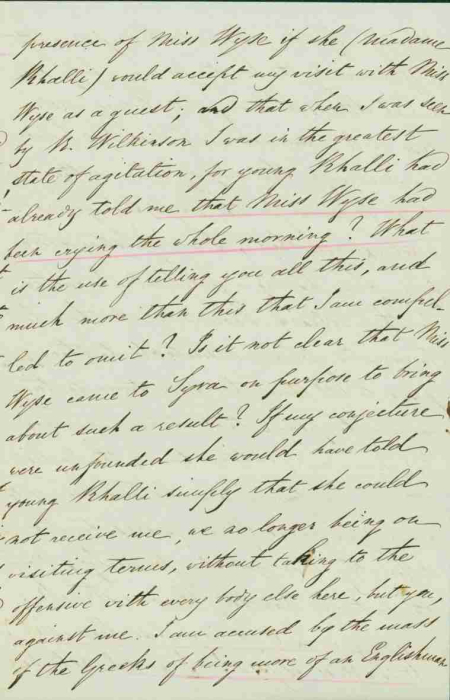 presence of Miss Wyse if she (Madame
Rhalli) would accept my visit with Miss
Wyse as a guest; and that when I was seen
by B. Wilkinson I was in the greatest
state of agitation, for young Rhalli had
already told me that Miss Wyse had
been crying the whole morning? What
is the use of telling you all this, and
much more than this that I am compel-
led to omit? Is it not clear that Miss
Wyse came to Syra on purpose to bring
about such a result? If my conjecture
were unfounded she would have told
young Rhalli simply that she could
not receive me, we no longer being on
visiting terms, without taking to the
offensive with every body else here, but you,
against me. I am accused by the mass
of the Greeks of being more of an Englishman